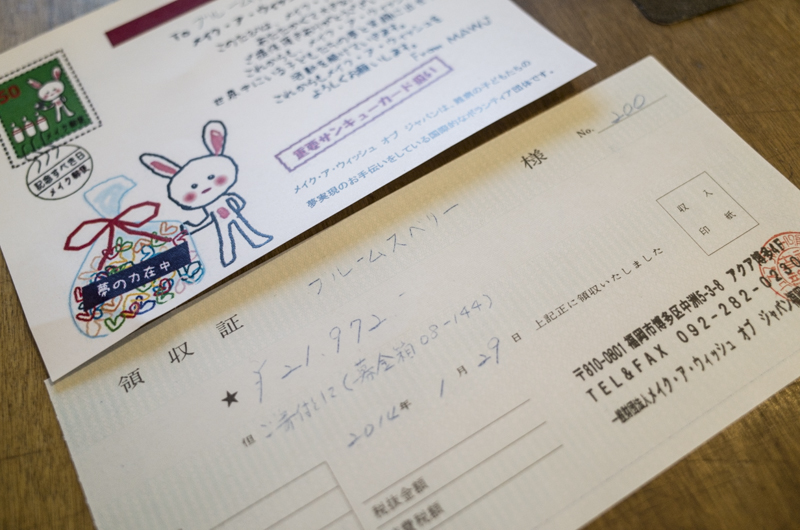 60
メイク郵便
To
メイク・ア・ウィ
このたびは、メイク
これからもメイク・ア・ウィッシュを
よろしくお願いします。
From MAWJ
重要サンキューカード扱い
メイク・ア・ウィッシュ オブ ジャパンは、難病の子どもたちの
夢実現のお手伝いをしている国際的なボランティア団体です。
記念すべき日
メイク郵便
夢の力在中
No. 200
様
フルームスベリー
収入
印紙
領収証
★ ¥21,972-
但 ご寄付に(募金箱 03-144)
2014年 1月29日 上記正に領収いたしました
〒810-0801 福岡市博多区中洲5-3-8 アクア博多4F
TEL&FAX 092-282-0230
一般財団法人メイク・ア・ウィッシュ オブ ジャパン
税抜金額
費税額